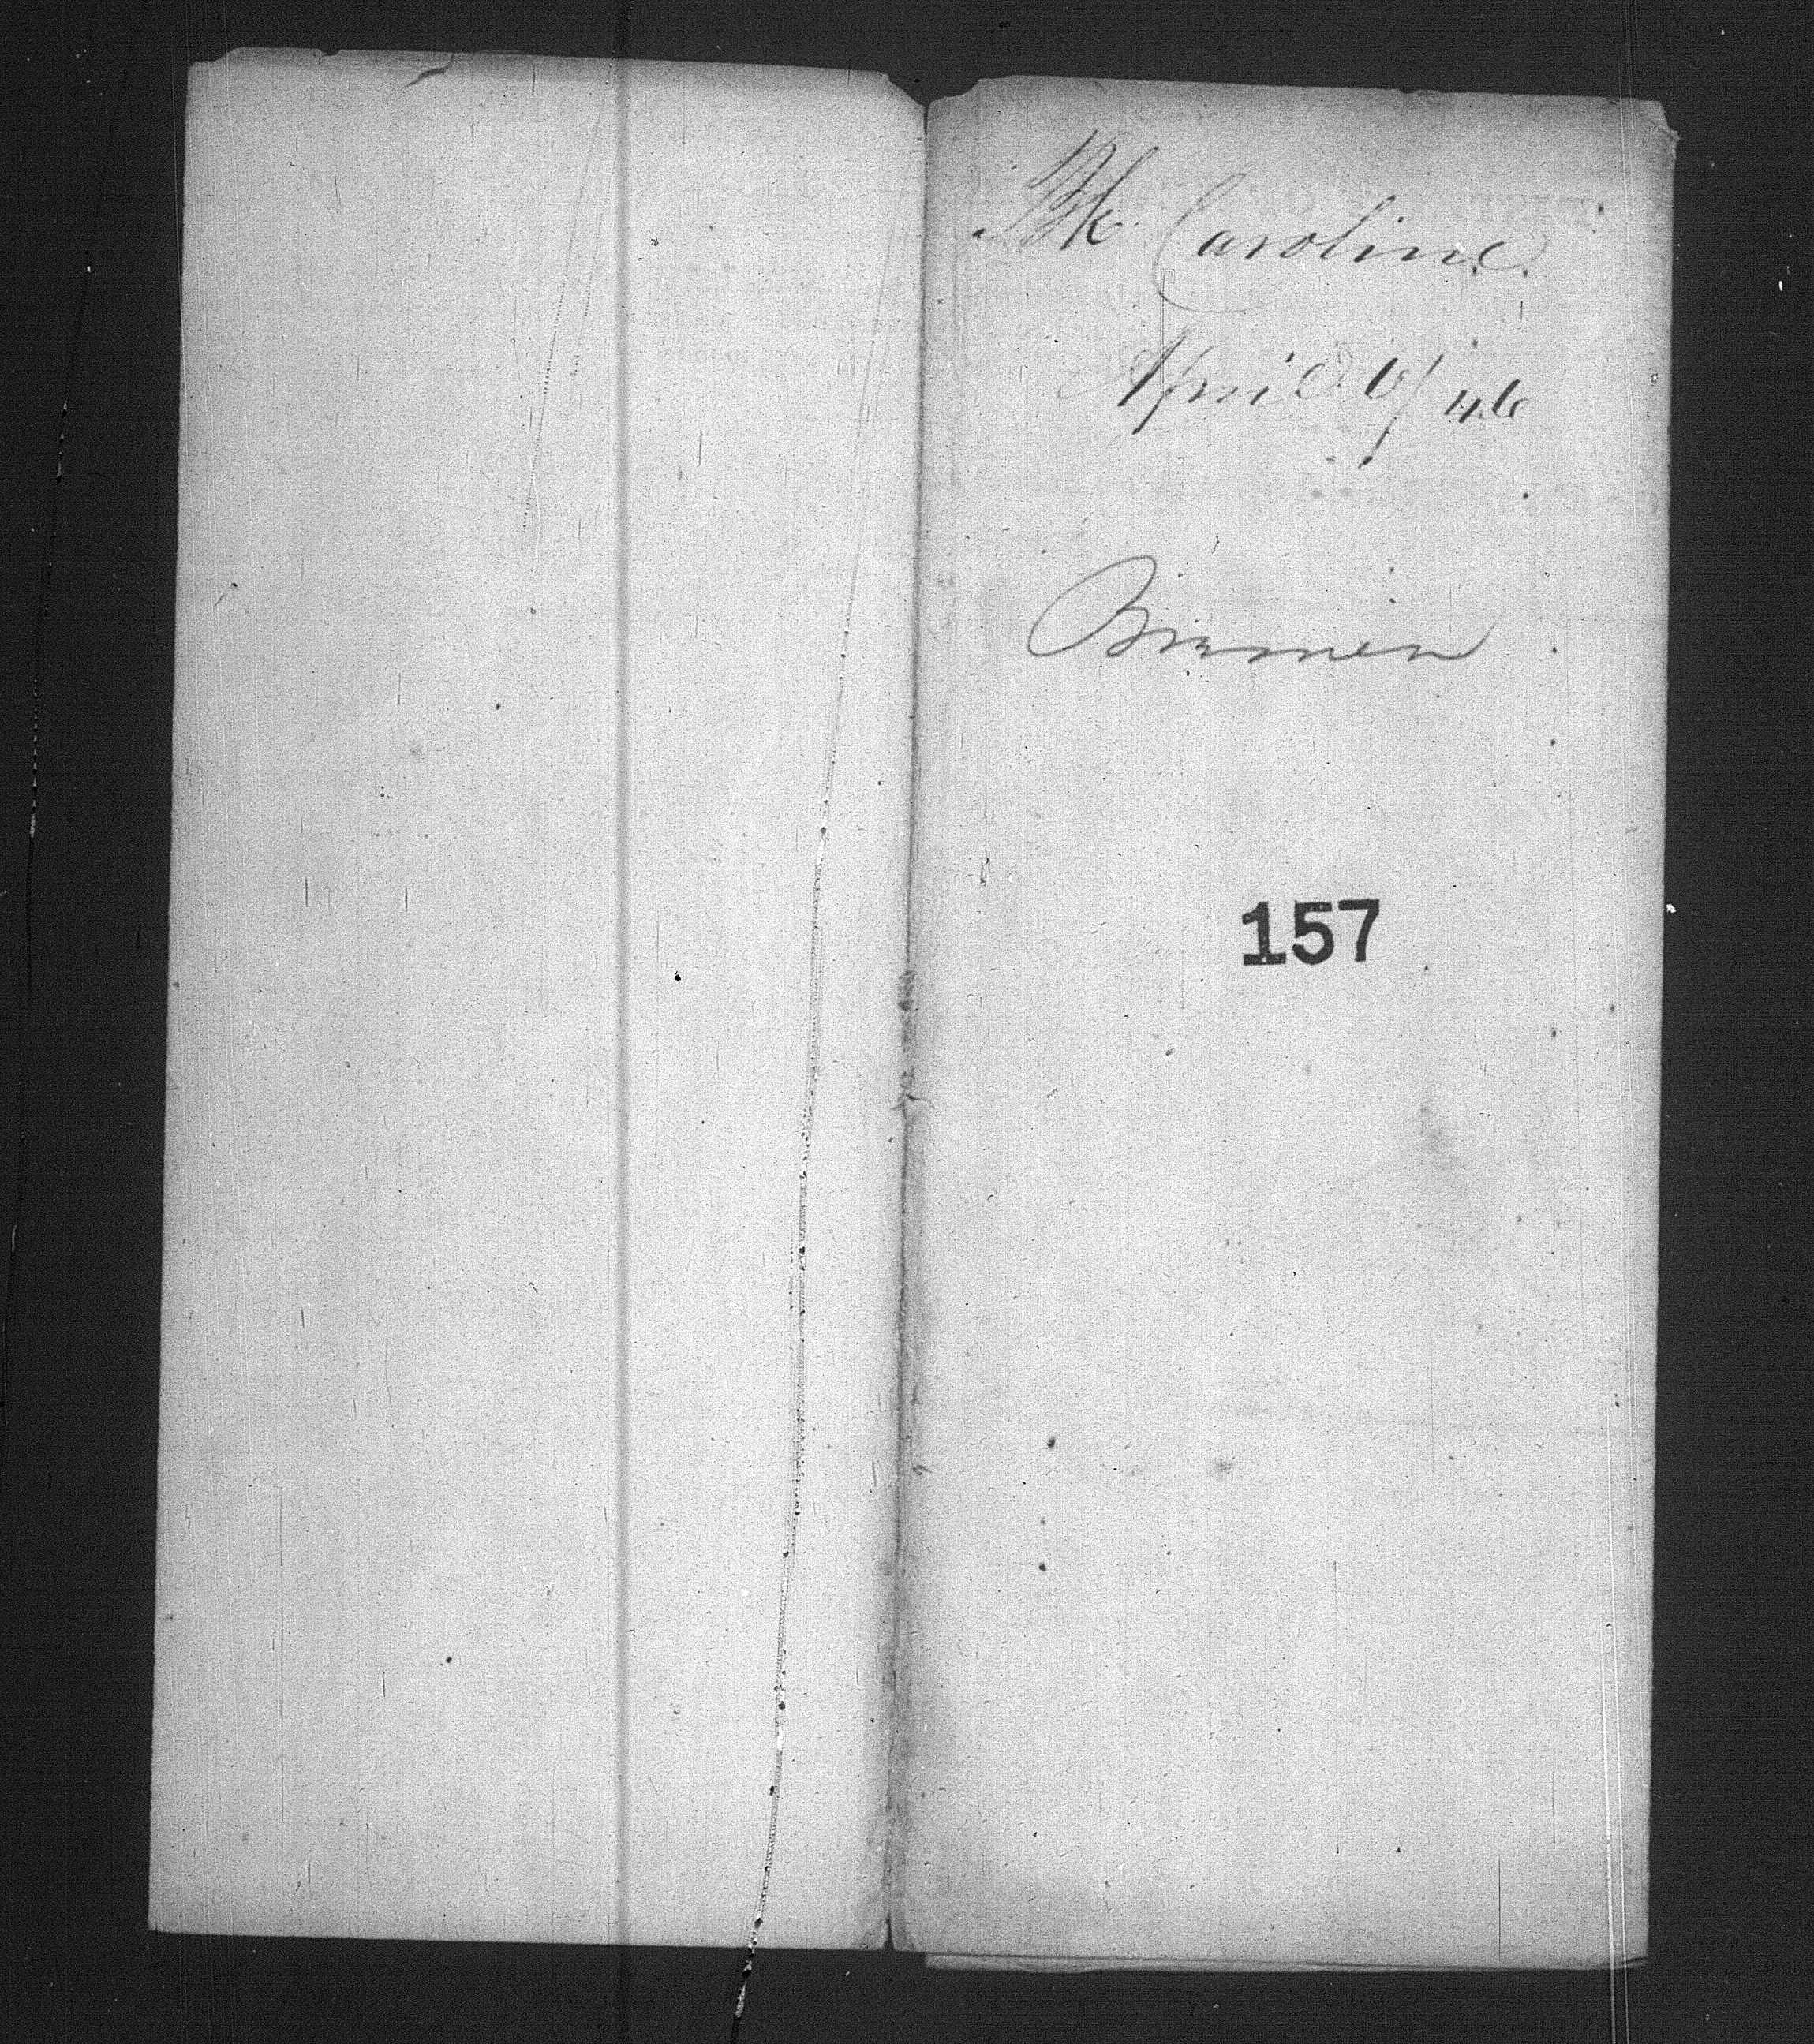 Bk Caroline.
April 6/46
Bremen
157